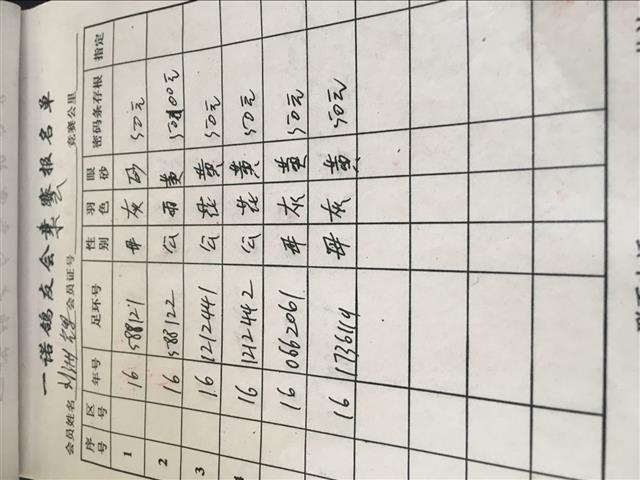 一诺鸽友会秉赛报名单
会员姓名 会员证号 竞赛公里
序号 区号 年号 足环号 性别 羽色 眼砂 密码条存根 指定
1 16 588121 母 灰 砂 50元
2 16 588122 公 雨 黄 50 100元
3 16 1212441 公 花 黄 50元
4 16 1212442 公 花 黄 50元
16 0662061 母 灰 黄 50元
16 1736119 母 灰 黄 50元